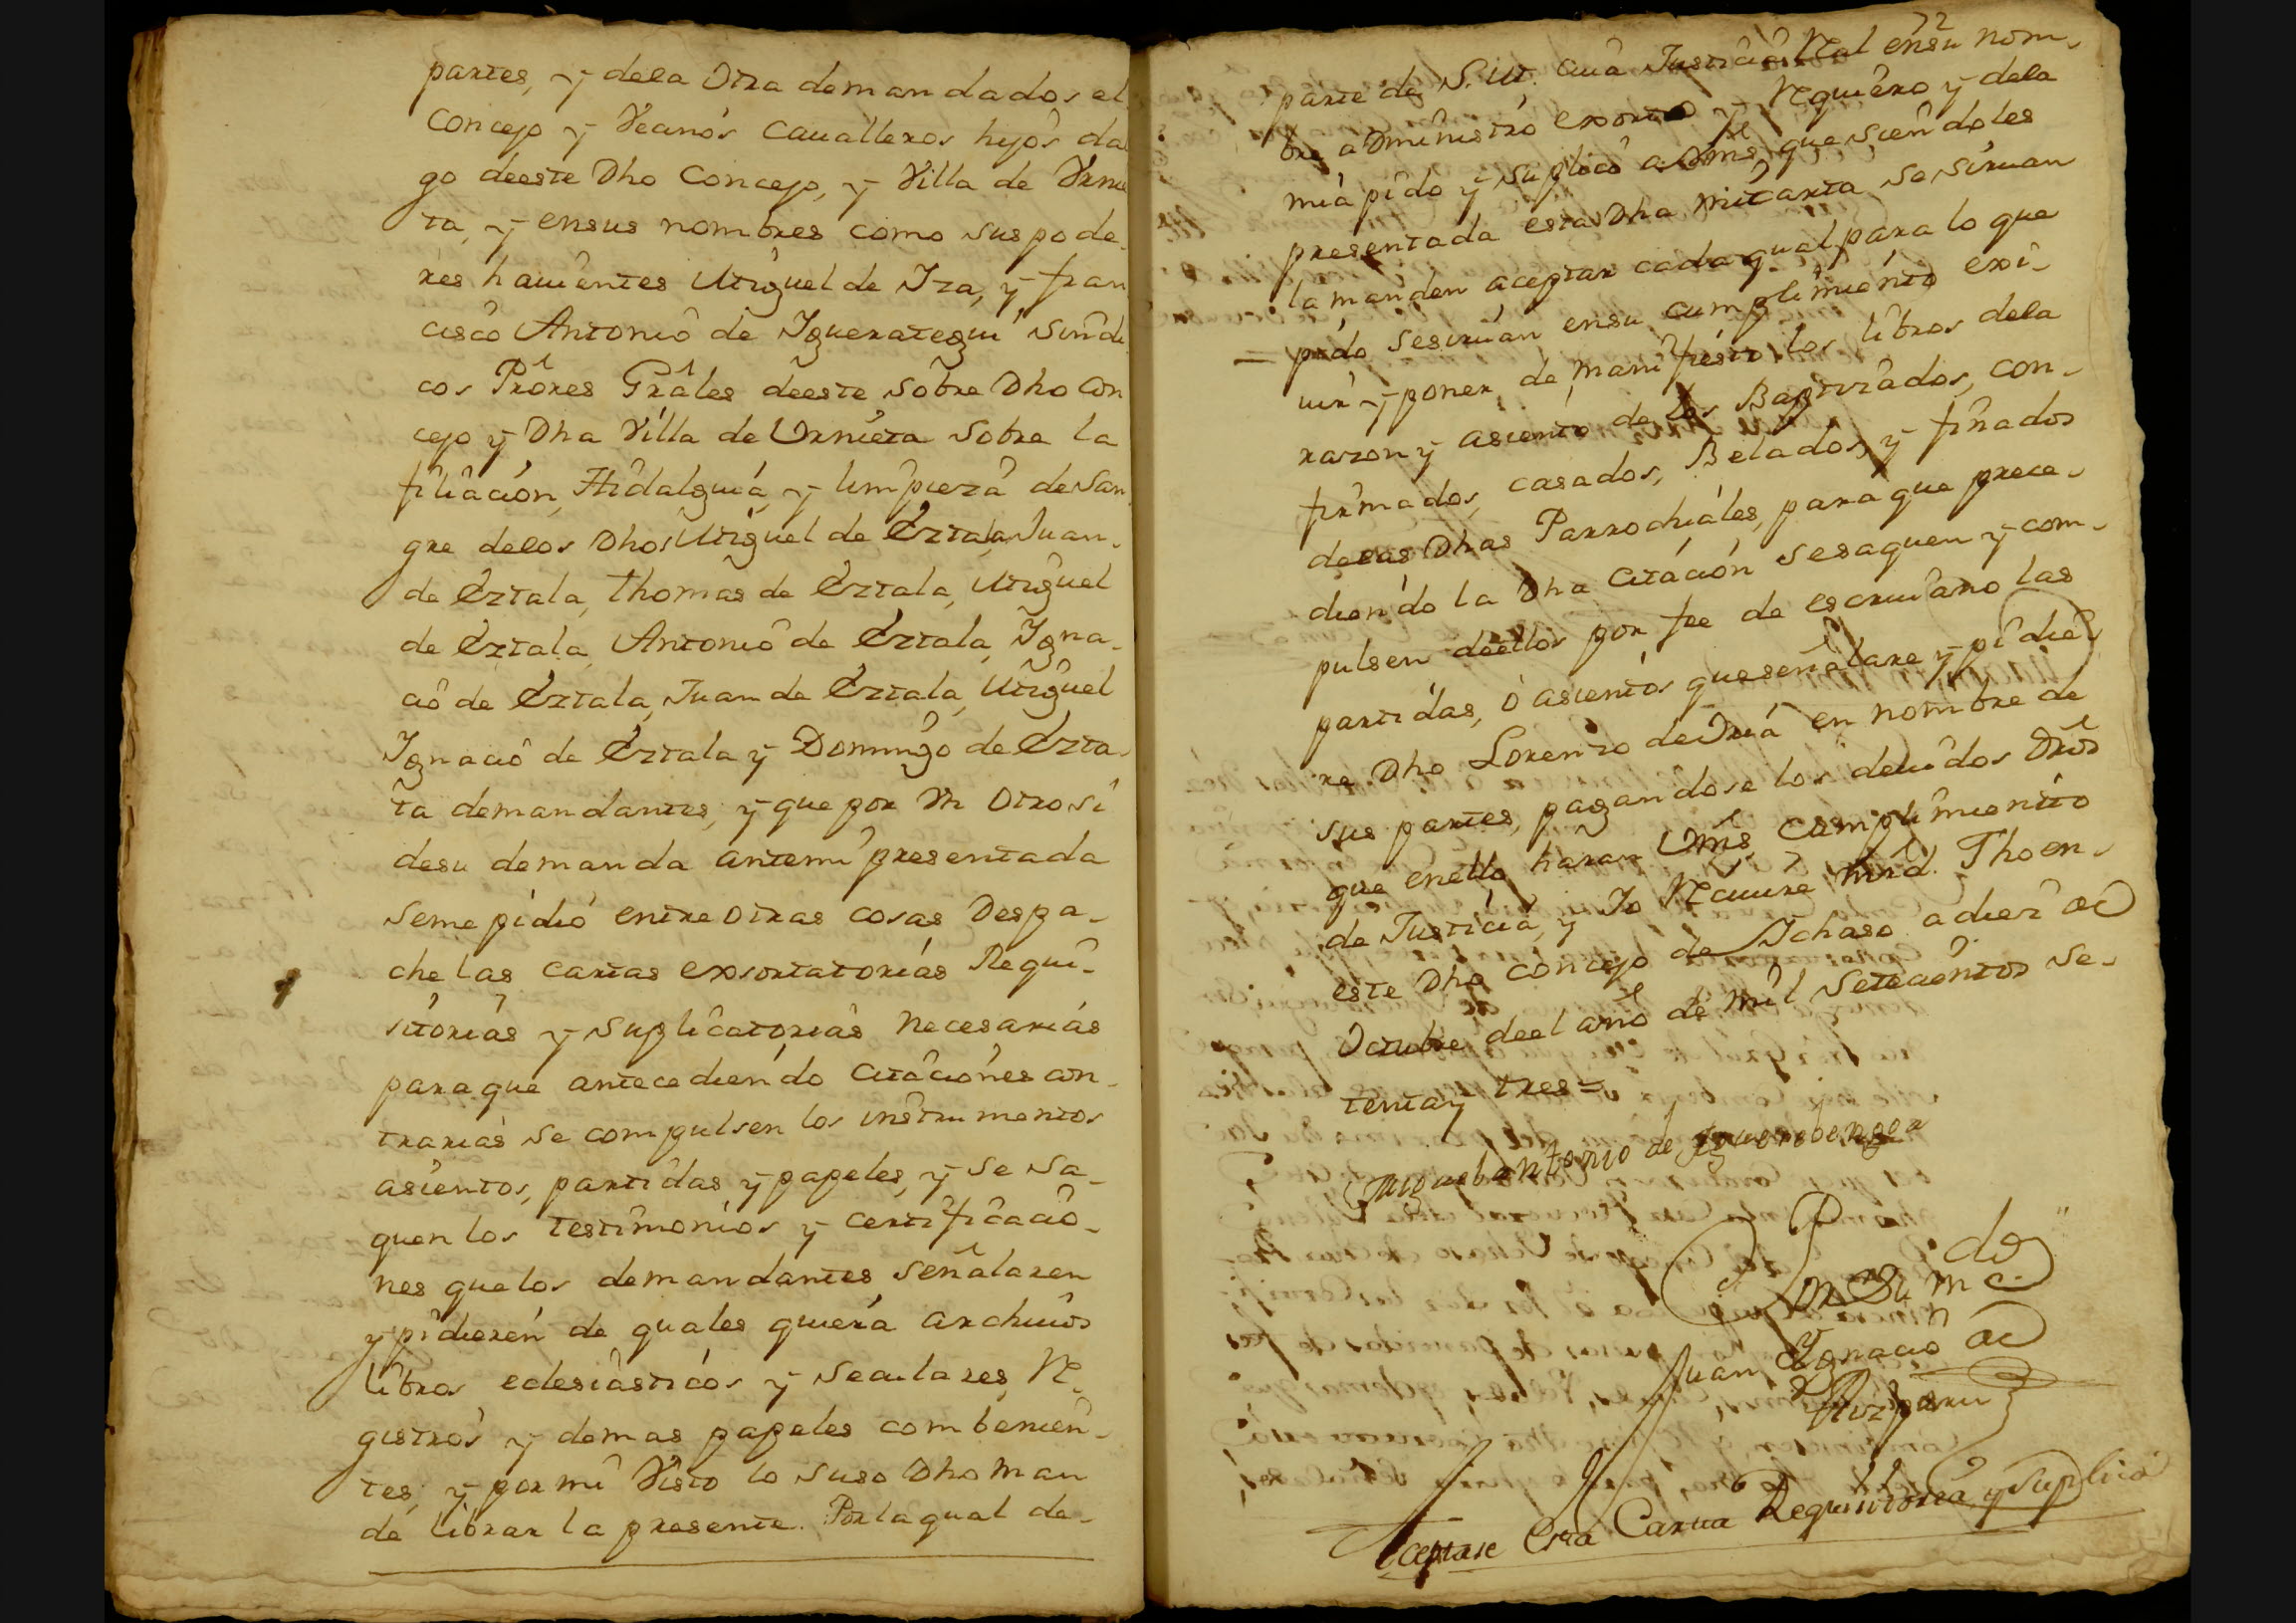 partes, y dela Otra demandados el
Concejo y Vecinos Cavalleros hijos da
go deeste Dho Concejo, y Villa de Vrnie
ta, y ensus nombres como sus pode-
res havientes Miguel de Iza, y fran
cisco Antonio de Iguerategui Sindi
cos Prôres Grâles deeste sobre Dho Con
cejo y Dha Villa de Urnieta Sobre la
filiación, Hidalguia, y limpieza de San
gre delos Dhos Miguel de Eztala, Juan
de Eztala, thomas de Eztala, Miguel
de Eztala, Antonio de Eztala, Igna-
cio de Eztala, Juan de Eztala, Miguel
Ignacio de Eztala y Domingo de Ezta-
la demandantes; y que por Vn Otrosi
desu demanda antemi presentada
seme pidió entre otras cosas Despa-
che las cartas exsortatorias Requi-
sitorias y suplicatorias necesarias
para que antecediendo Citaciones con-
trarias se compulsen los instrumentos
asientos, partidas y papeles, y se sa-
quen los testimonios y certificacio-
nes que los demandantes señalaren
y pidieren de quales quiera archivos
libros eclesiasticos y Seculares, Re-
gistros y demas papeles combenien-
tes; y por mi Visto lo suso Dho man
dé librar la presente. Por la qual de-
72
parte de S. M. cuia Justicia Real ensu nom-
bre administro exorto y Requiero y dela
mia pido y suplico a Vms que siendoles
presentada esta Dha mi carta se sirvan
la manden aceptar cada qual para lo que
= pido se sirvan ensu cumplimiento exi-
vir y poner de manifiesto los libros dela
razon y asiento de los Baptizados, con-
firmados, casados, Belados, y finados
delas Dhas Parrochiales, para que prece-
diendo la Dha Citación se saquen y com-
pulsen deellos por fee de escrivano las
partidas, ó asientos que señalare y pidie-
re Dho Lorenzo de Oria en nombre de
sus partes, pagandose los devidos Dros
que enello haran Vms cumplimiento
de Justicia, y Yo Recivire mrd. Fho en
este Dho Concejo de Ichaso a diez de
Octubre deel año de mil Setecientos se-
tenta y tres =
Miguel Antonio de
Por Su mdo.
Juan Ygnacio de
Aizpuru
Aceptase Esta Carta Requisitoria y Suplica